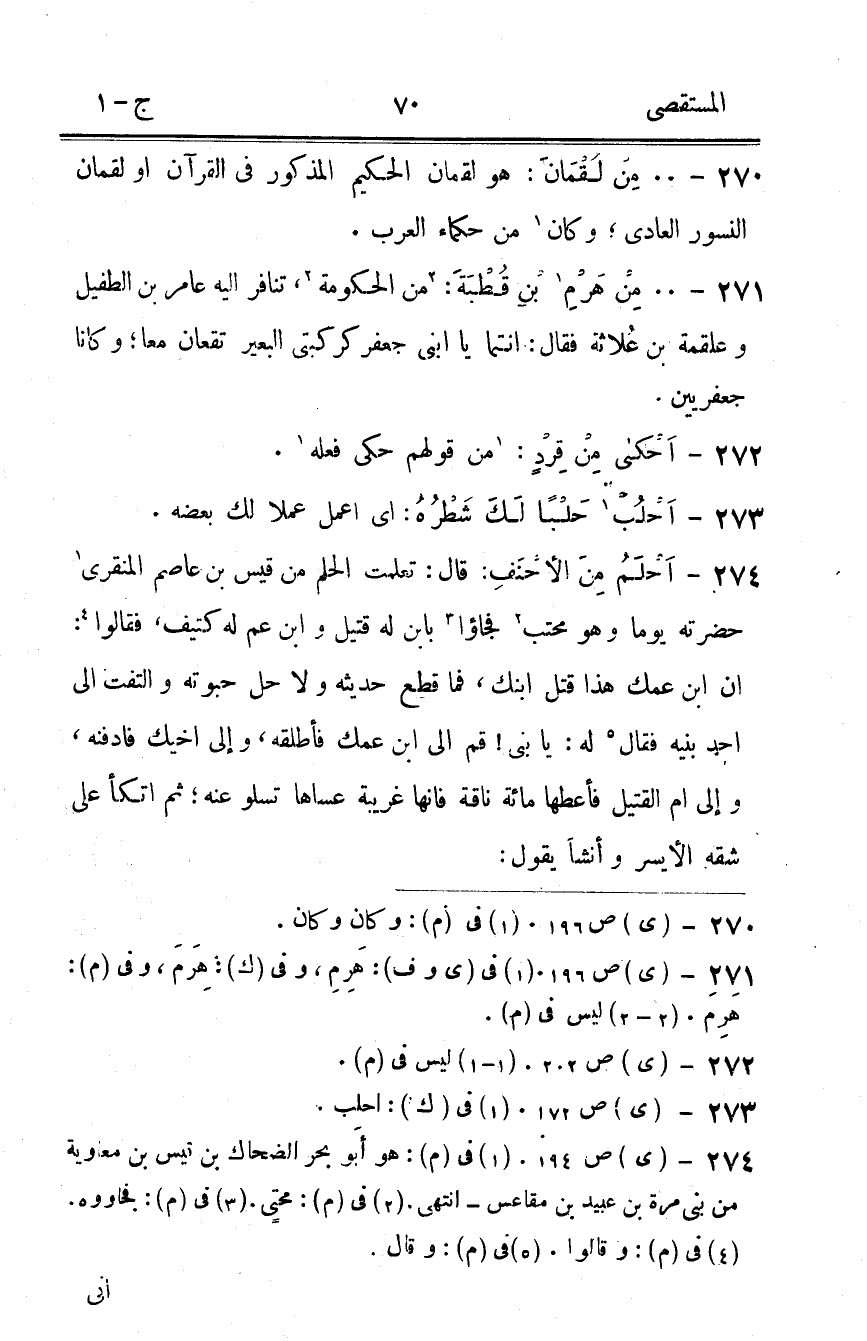 المستقصى ٧٠ ج - ١
٢٧٠ - ٠٠ مِنَ لُقْمَانَ: هو لقمان الحكيم المذكور فى القرآن او لقمان
النسور العادى؛ وكان١ من حكماء العرب ٠
٢٧١ - ٠٠ مِنْ هَرِمِ١ بْنِ قُطْبَةَ: ٢من الحكومة٢، تنافر اليه عامر بن الطفيل
و علقمة بن عُلاثة فقال: انتما يا ابنى جعفر كركبتى البعير تقعان معا؛ و كانا
جعفريين ٠
٢٧٢ - اَحْكٰى مِنْ قِرْدٍ: ١من قولهم حكى فعله١ ٠
٢٧٣ - اَحْلُبْ١ حَلَبًا لَكَ شَطْرُهُ: اى اعمل عملا لك بعضه ٠
٢٧٤ - اَحْلَمُ مِنَ الأَحْنَفِ: قال: تعلمت الحلم من قيس بن عاصم المنقرى١
حضرته يوما و هو محتب٢ فجاؤا٣ بابن له قتيل و ابن عم له كتيف، فقالوا٤:
ان ابن عمك هذا قتل ابنك، فما قطع حديثه و لا حل حبوته و التفت الى
احد بنيه فقال٥ له: يا بنى! قم الى ابن عمك فأطلقه، و إلى اخيك فادفنه،
و إلى ام القتيل فأعطها مائة ناقة فانها غريبة عساها تسلو عنه؛ ثم اتكأ على
شقه الأيسر و أنشأ يقول:
٢٧٠ - (ى) ص ١٩٦ ٠ (١) فى (م): وكان وكان ٠
٢٧١ - (ى) ص ١٩٦ ٠ (١) فى (ى و ف): هَرِمِ، و فى (ك): هَرِمَ، و فى (م):
هَرِمَ ٠ (٢ - ٢) ليس فى (م) ٠
٢٧٢ - (ى) ص ٢٠٢ ٠ (١-١) ليس فى (م) ٠
٢٧٣ - (ى) ص ١٧٢ ٠ (١) فى (ك): احلب ٠
٢٧٤ - (ى) ص ١٩٤ ٠ (١) فى (م): هو أبو بحر الضحاك بن قيس بن معاوية
من بنى مرة بن عبيد بن مقاعس - انتهى ٠ (٢) فى (م): محتبى ٠ (٣) فى (م): فجاووه ٠
(٤) فى (م): و قالوا ٠ (٥) فى (م): و قال ٠
أنى